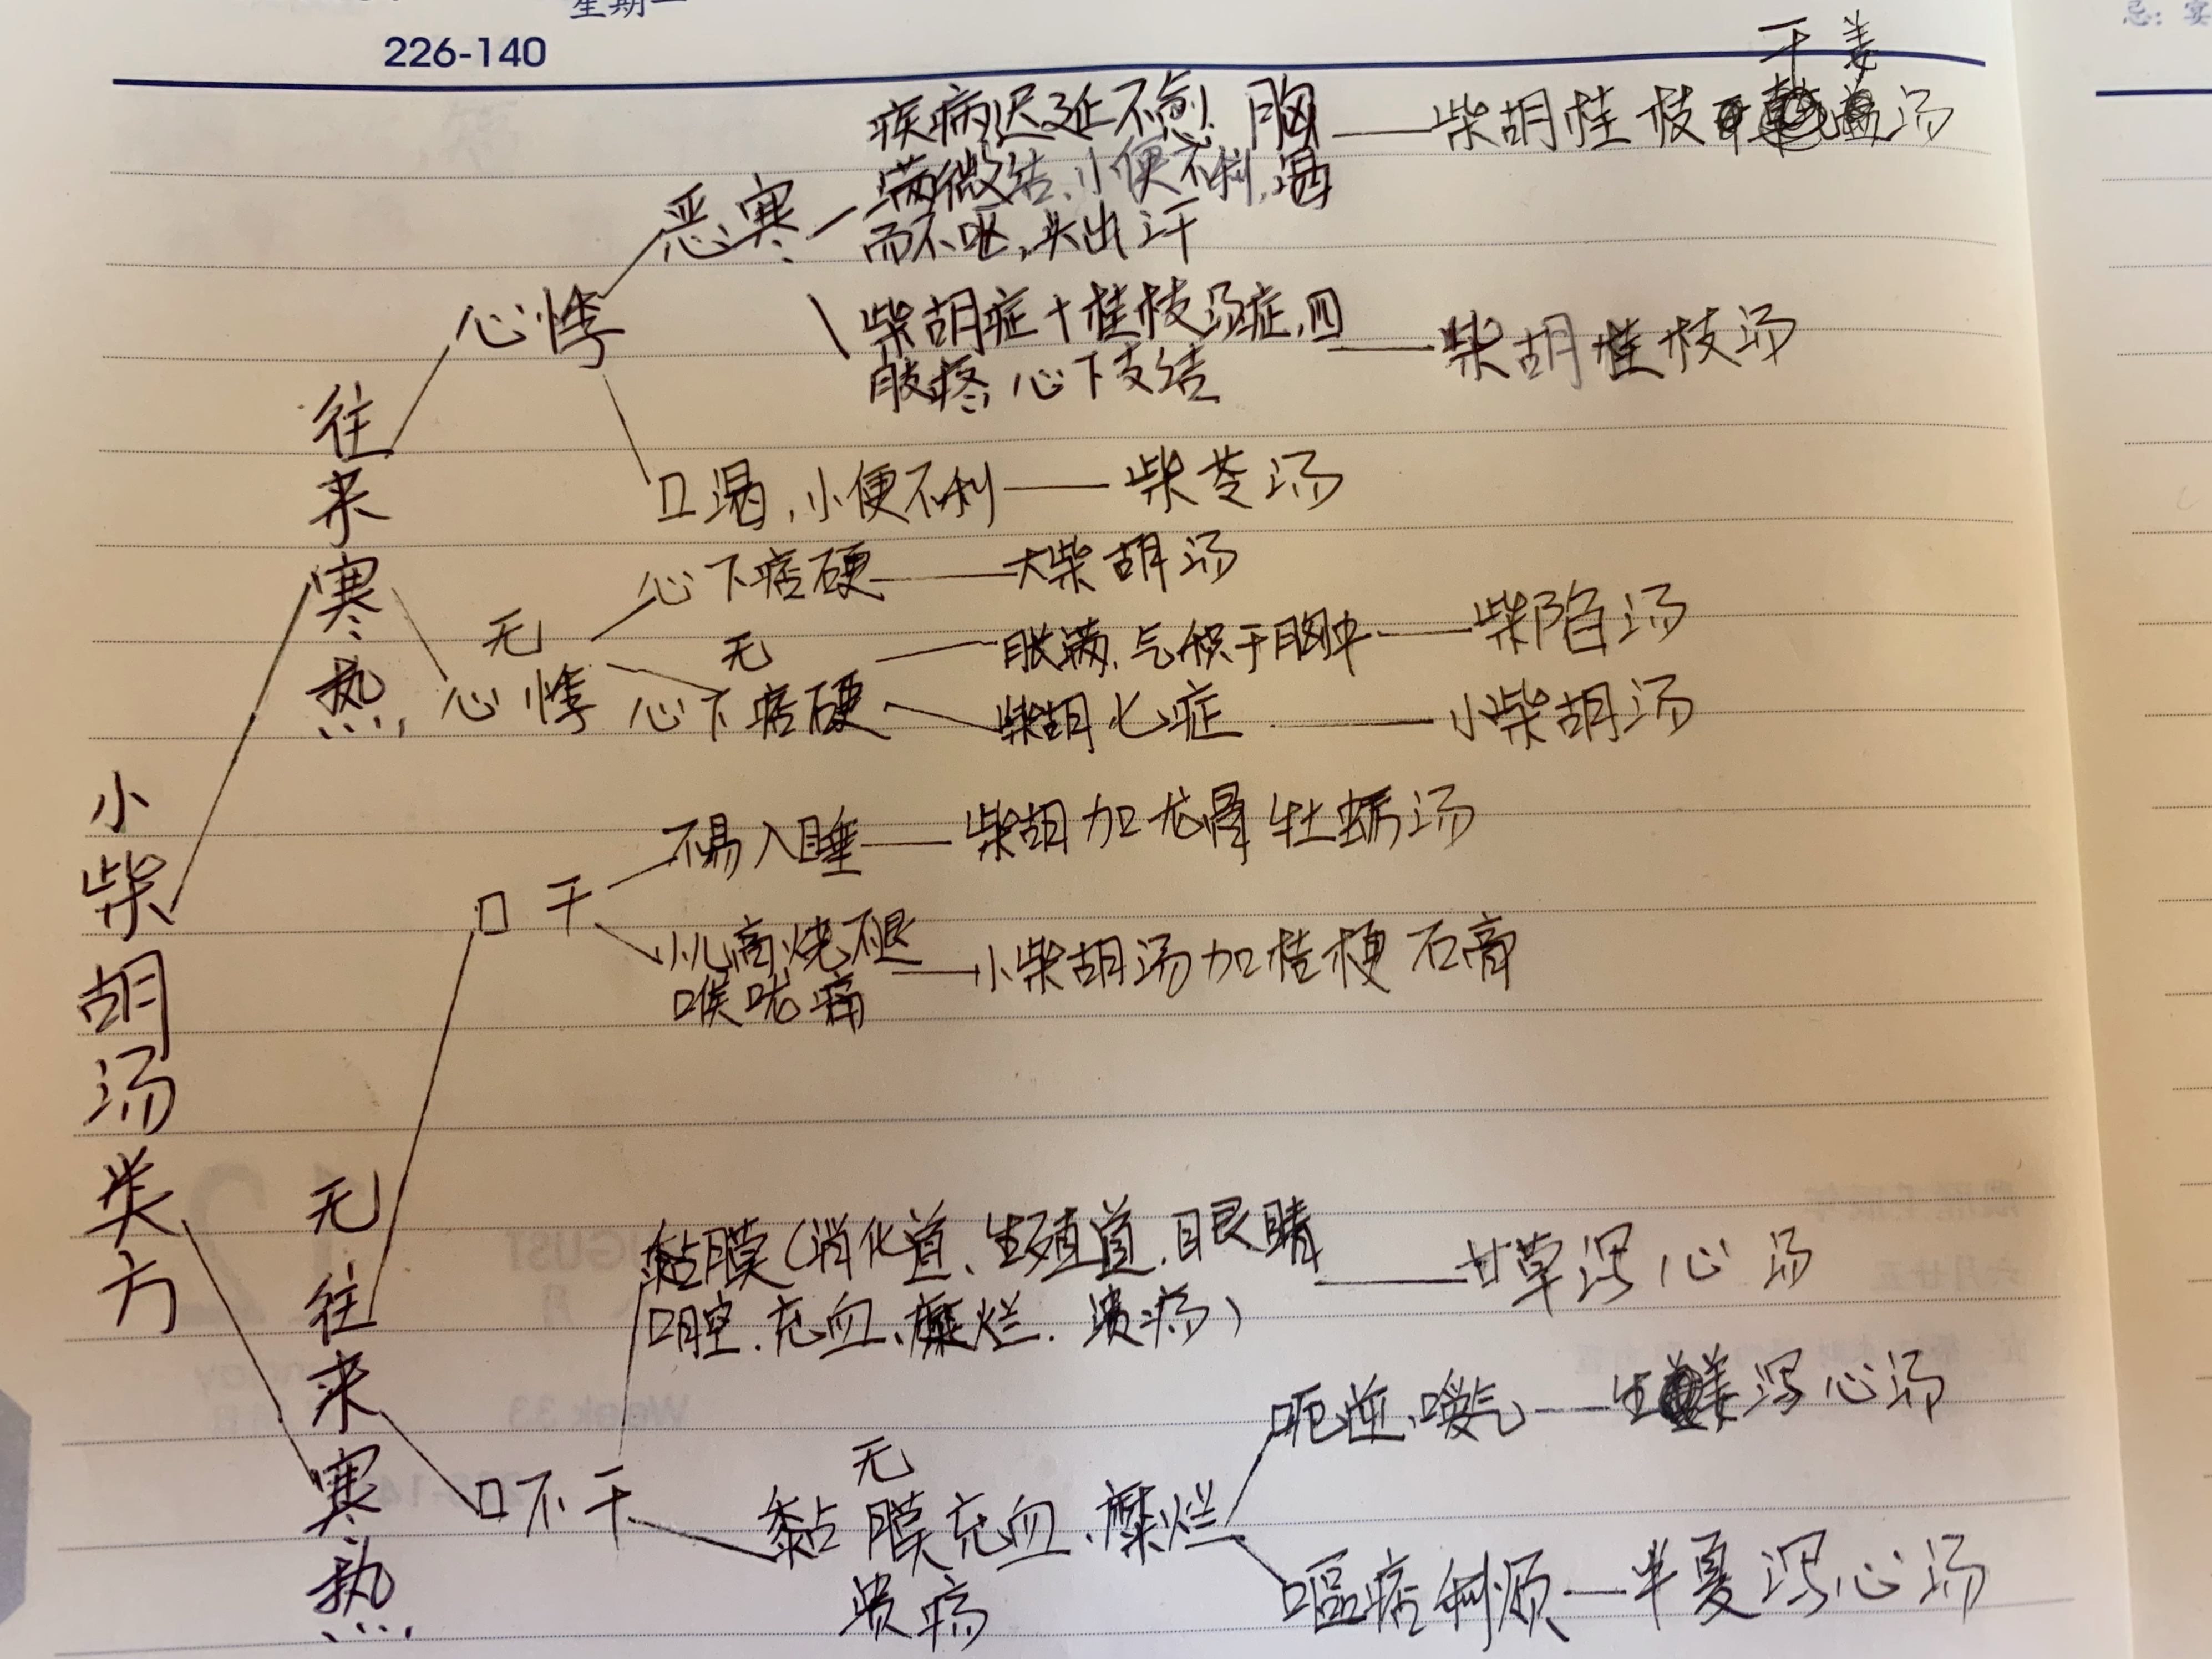 星期一
226-140
忌：宴
干姜
疾病迟延不愈、胸——柴胡桂枝汤
恶寒 满微结、小便不利,渴
而不呕,头出汗
心悸
柴胡症+桂枝汤症,四——柴胡桂枝汤
肢疼,心下支结
口渴,小便不利——柴苓汤
往来寒热
心下痞硬——大柴胡汤
无心悸
无心下痞硬
胀满,气积于胸中——柴陷汤
柴胡七症——小柴胡汤
小柴胡汤类方
口干
不易入睡——柴胡加龙骨牡蛎汤
小儿高烧不退
喉咙痛——小柴胡汤加桔梗石膏
无往来寒热
黏膜(消化道、生殖道.眼睛——甘草泻心汤
口腔.充血、糜烂.溃疡)
口不干
无
黏膜充血、糜烂
溃疡
呃逆、嗳气——生姜泻心汤
呕痞利烦——半夏泻心汤